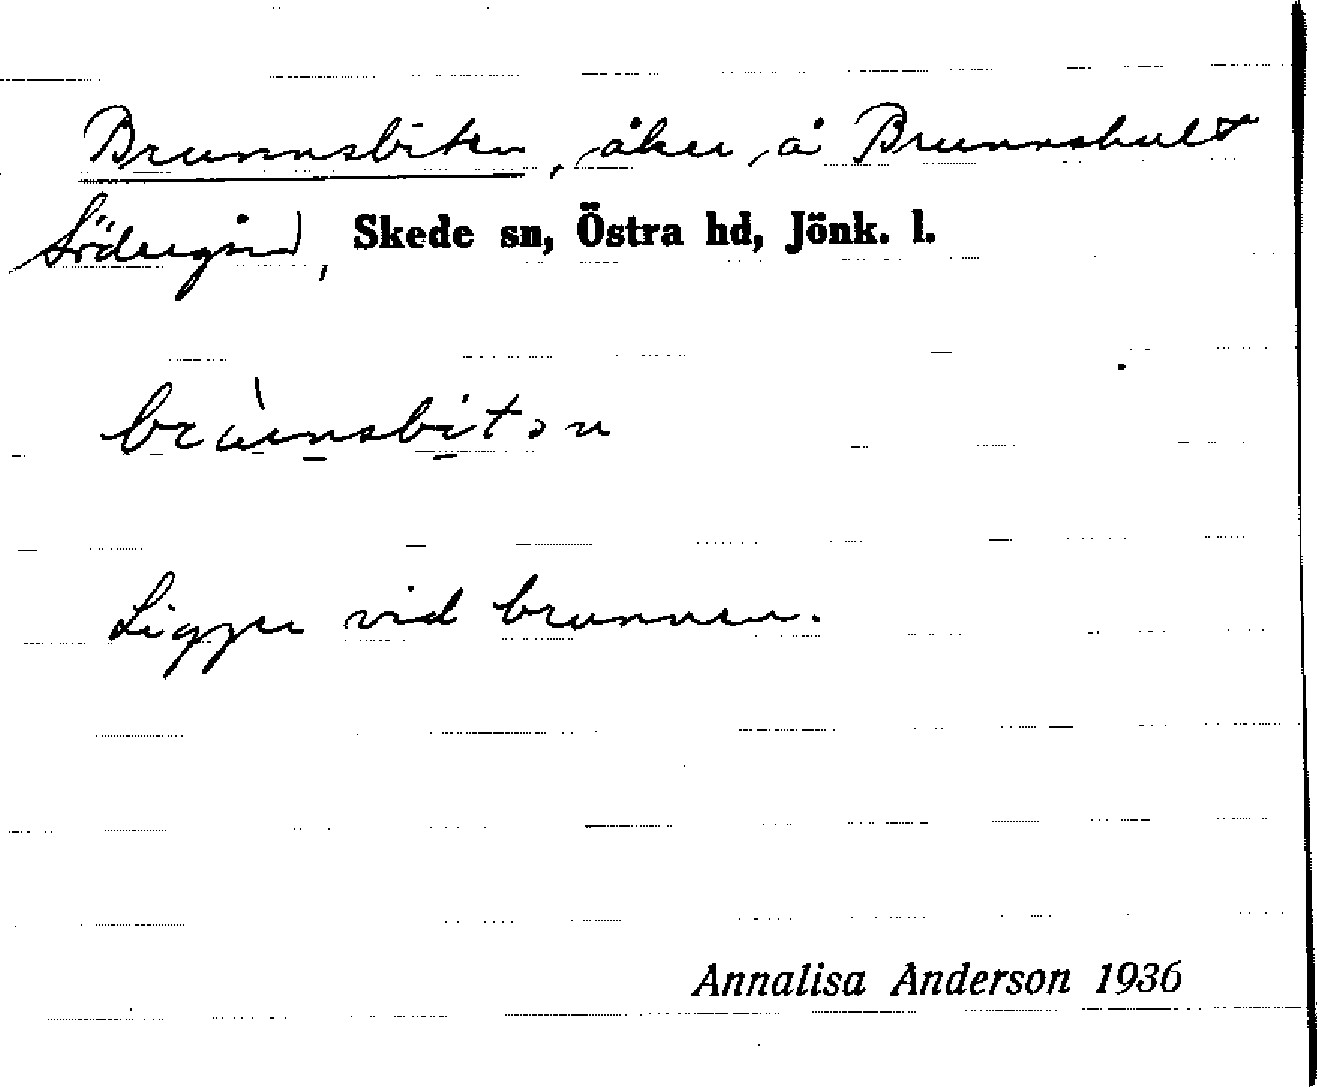 Brunnsbiten, åker å Brunnshult
Södergård, Skede sn, Östra hd, Jönk. l.
brùnsbitən
Ligger vid brunnen.
Annalisa Anderson 1936